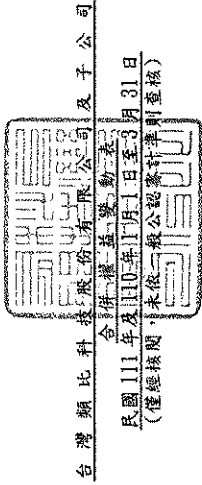 台灣類比科技股份有限公司及子公司
合併權益變動表
民國111年及110年1月1日至3月31日
(僅經核閱，未依一般公認審計準則查核)